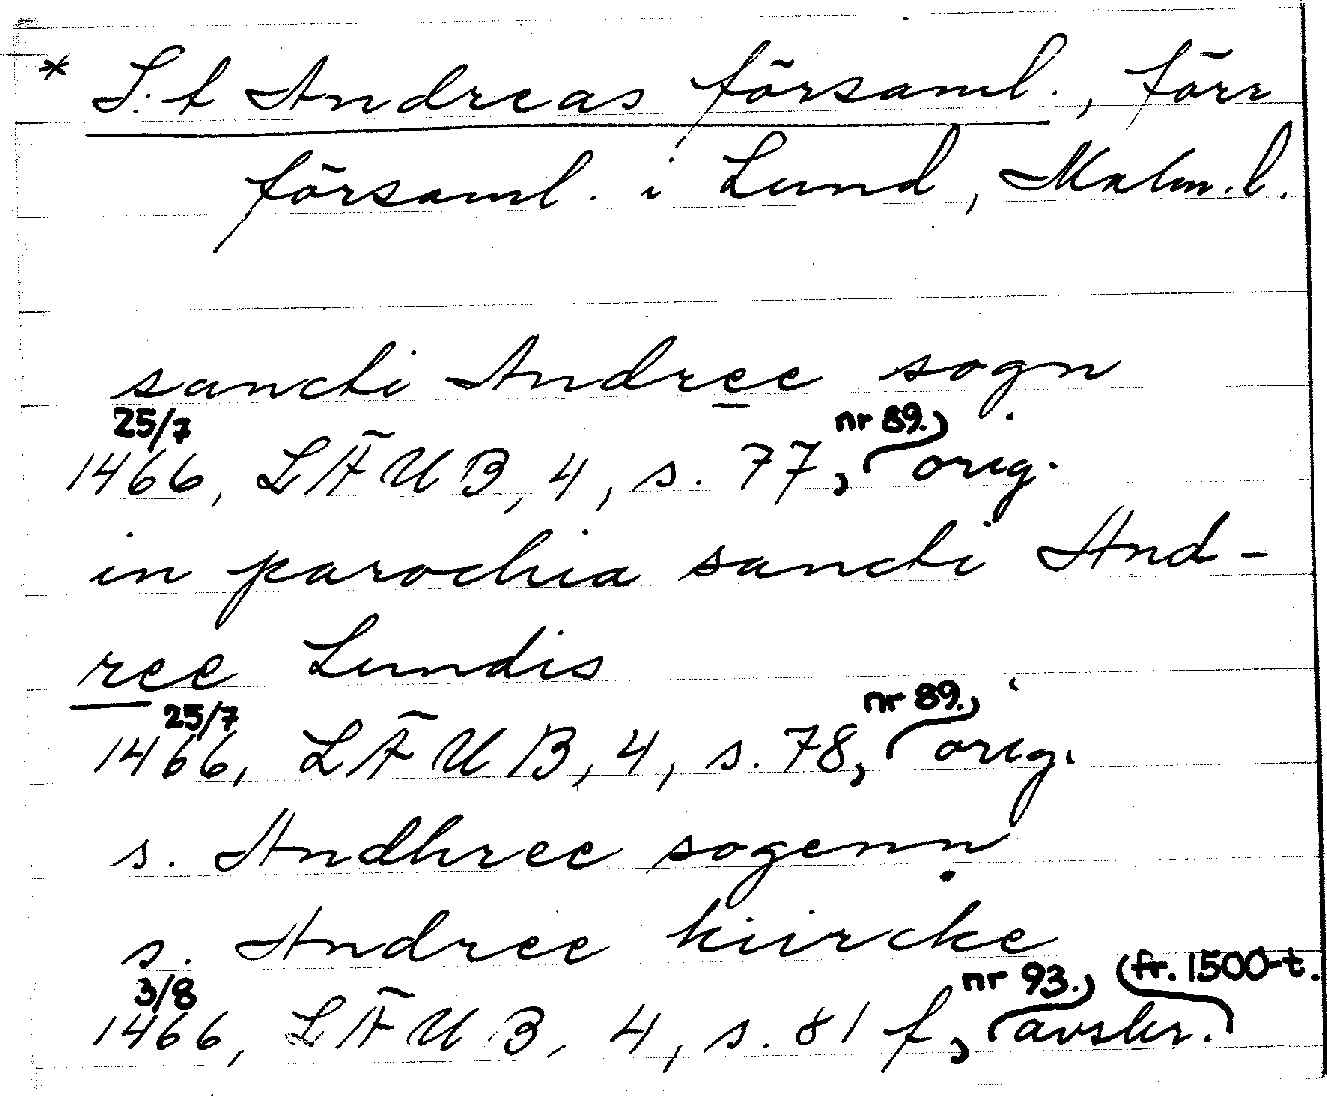 * S:t Andreas församl., förr
församl. i Lund, Malm.l.
sancti Andree sogn
25/7 nr 89.,
1466, LÄUB, 4, s. 77, orig.
in parochia sancti And-
ree Lundis
25/7 nr 89.,
1466, LÄUB, 4, s. 78, orig.
s. Andhree sogenn
s. Andree kiircke
3/8 nr 93., (fr. 1500-t.
1466, LÄUB, 4, s. 81 f, avskr.